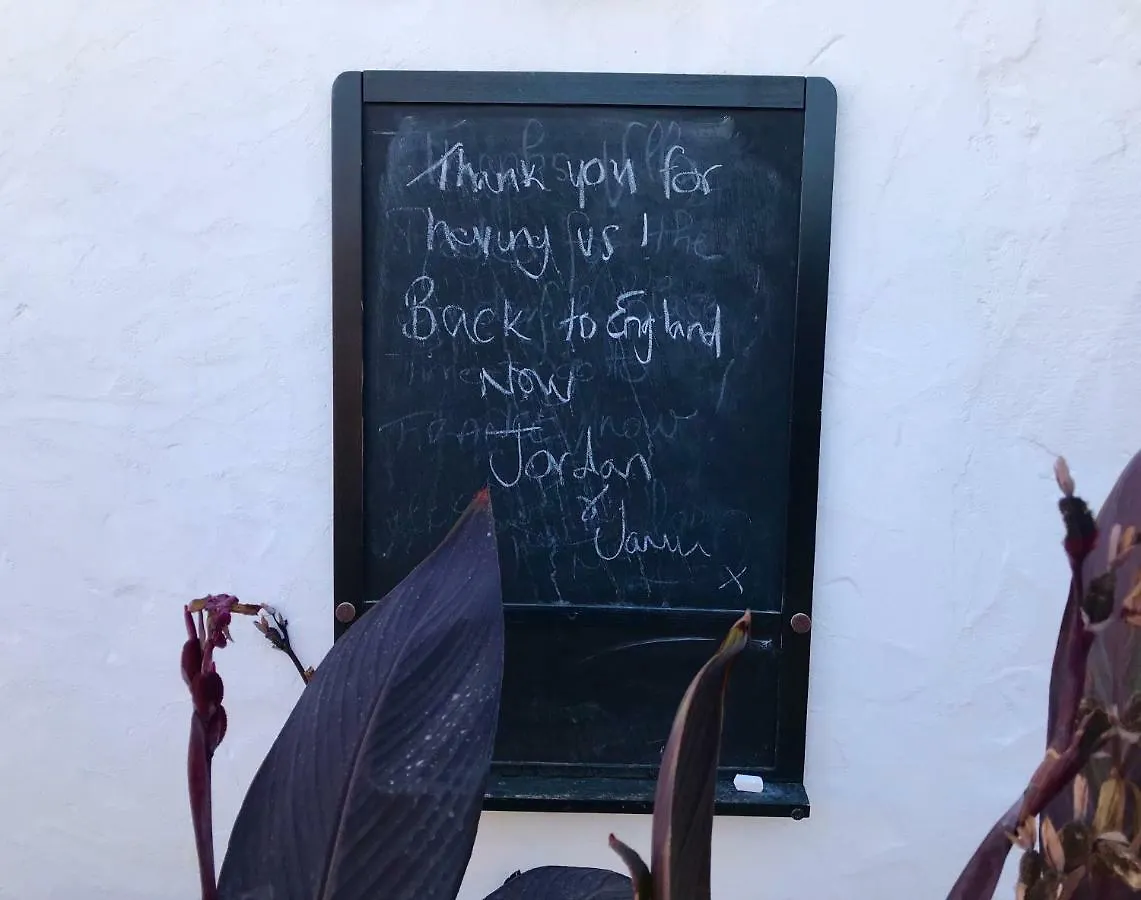 Thank you for
having us!
Back to England
Now
Jordan
&
x